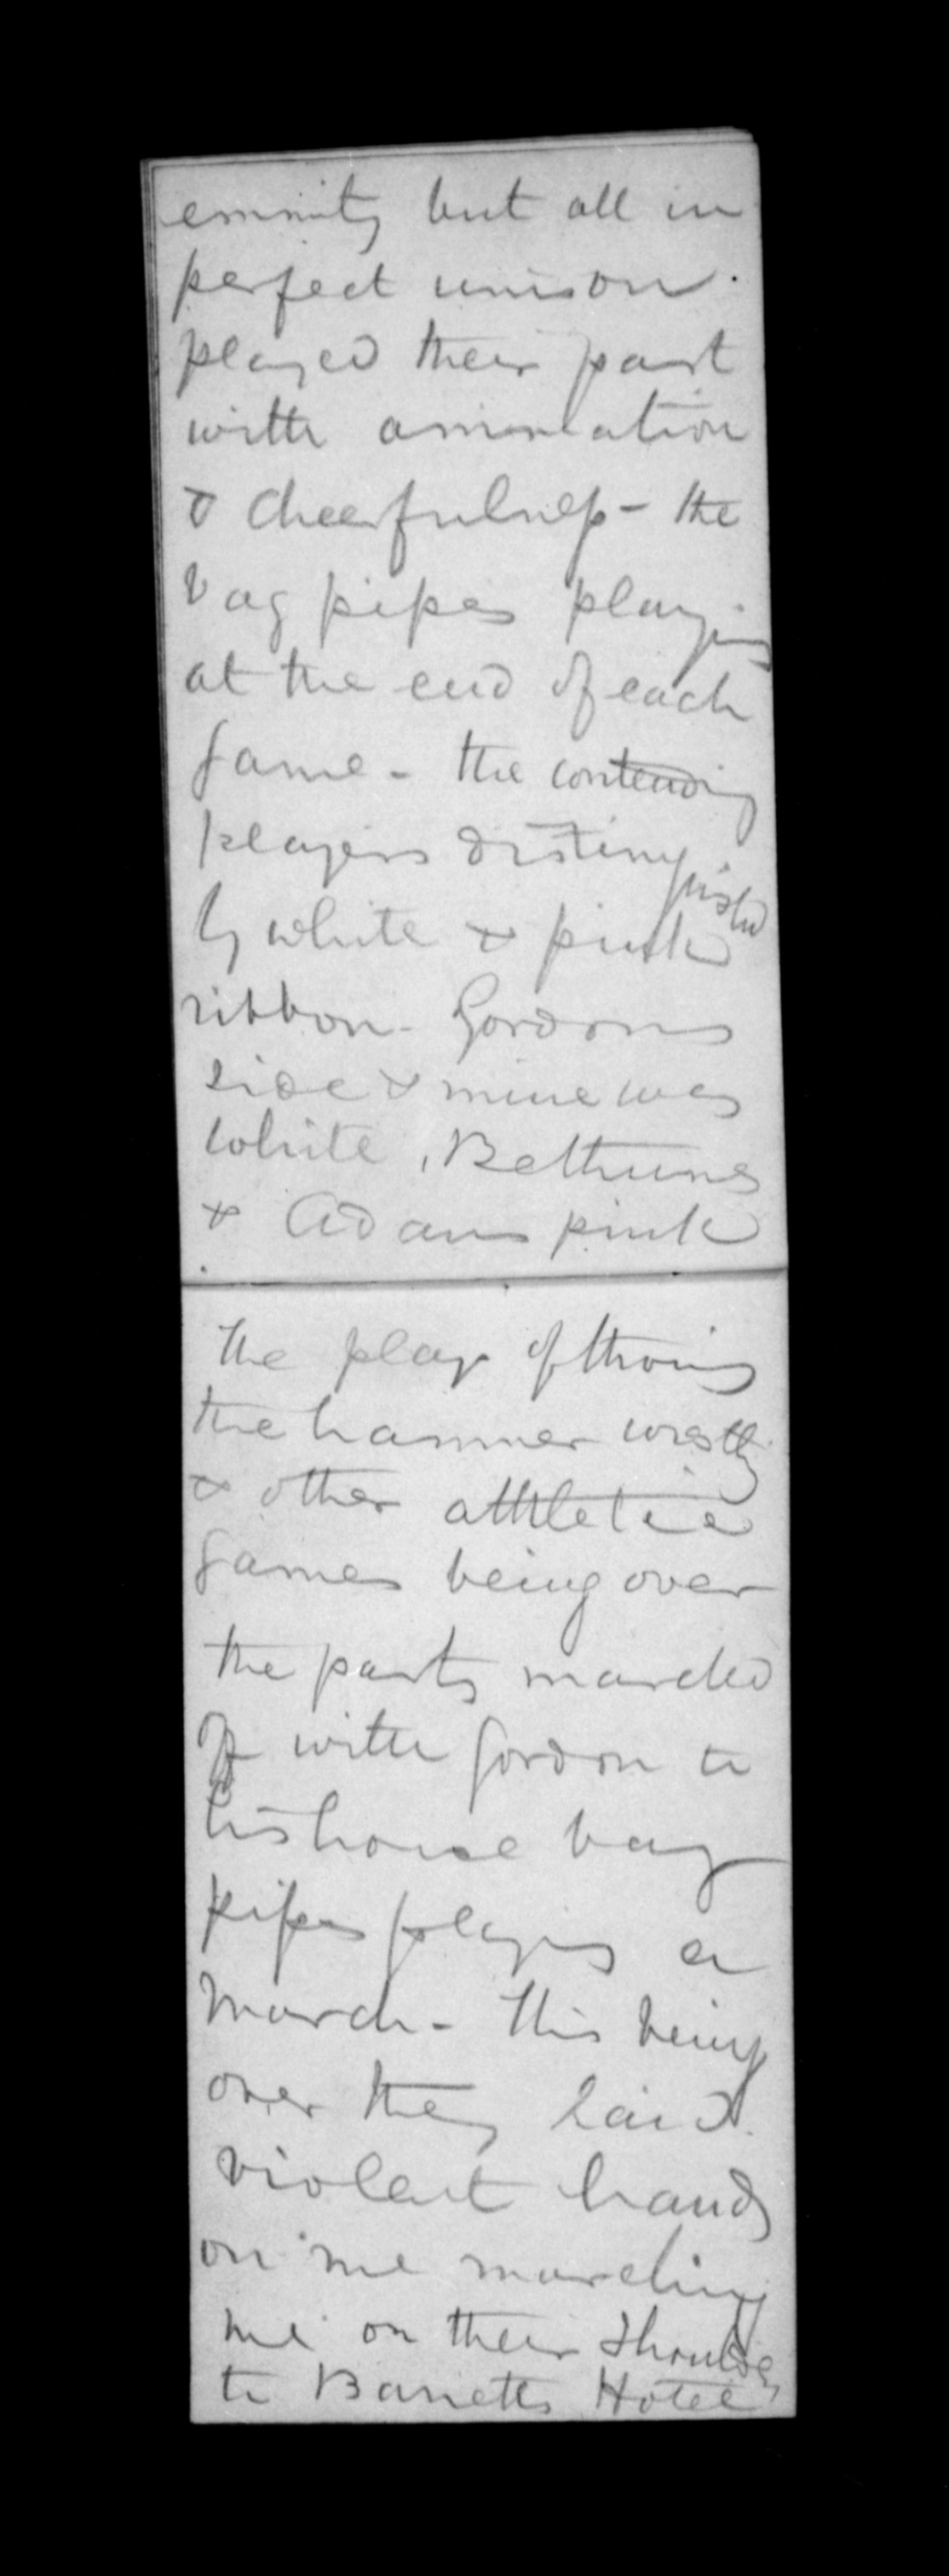 enmity but all in
perfect unison.
played their part
with animation
& cheerfulness - the
bag pipes playing
at the end of each
game - the contending
players distinguished
by white & pink
ribbon - Gordons
side & mine was
white, Bethunes
& Adams pink
the play of throing
the hammer wrestlg
& other athletic
games being over
the party marched
off with Gordon to
his house bag
pipes playing a
march - this being
over they laid
violent hands
on me marching
me on their shoulders
to Barretts Hotel